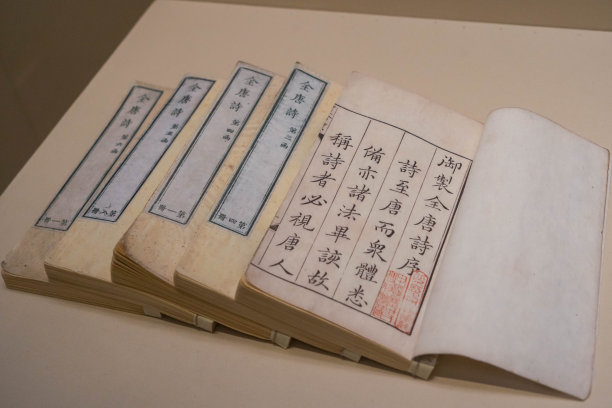 御製全唐詩序
詩至唐而衆體悉
備亦諸法畢該故
稱詩者必視唐人
全唐詩 第二函
第四冊
全唐詩 第四函
第一冊
全唐詩 第五函
第八冊
全唐詩 第六函
第一冊